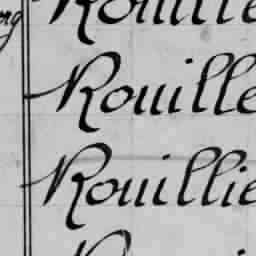 Rouille
Rouille
Rouillie